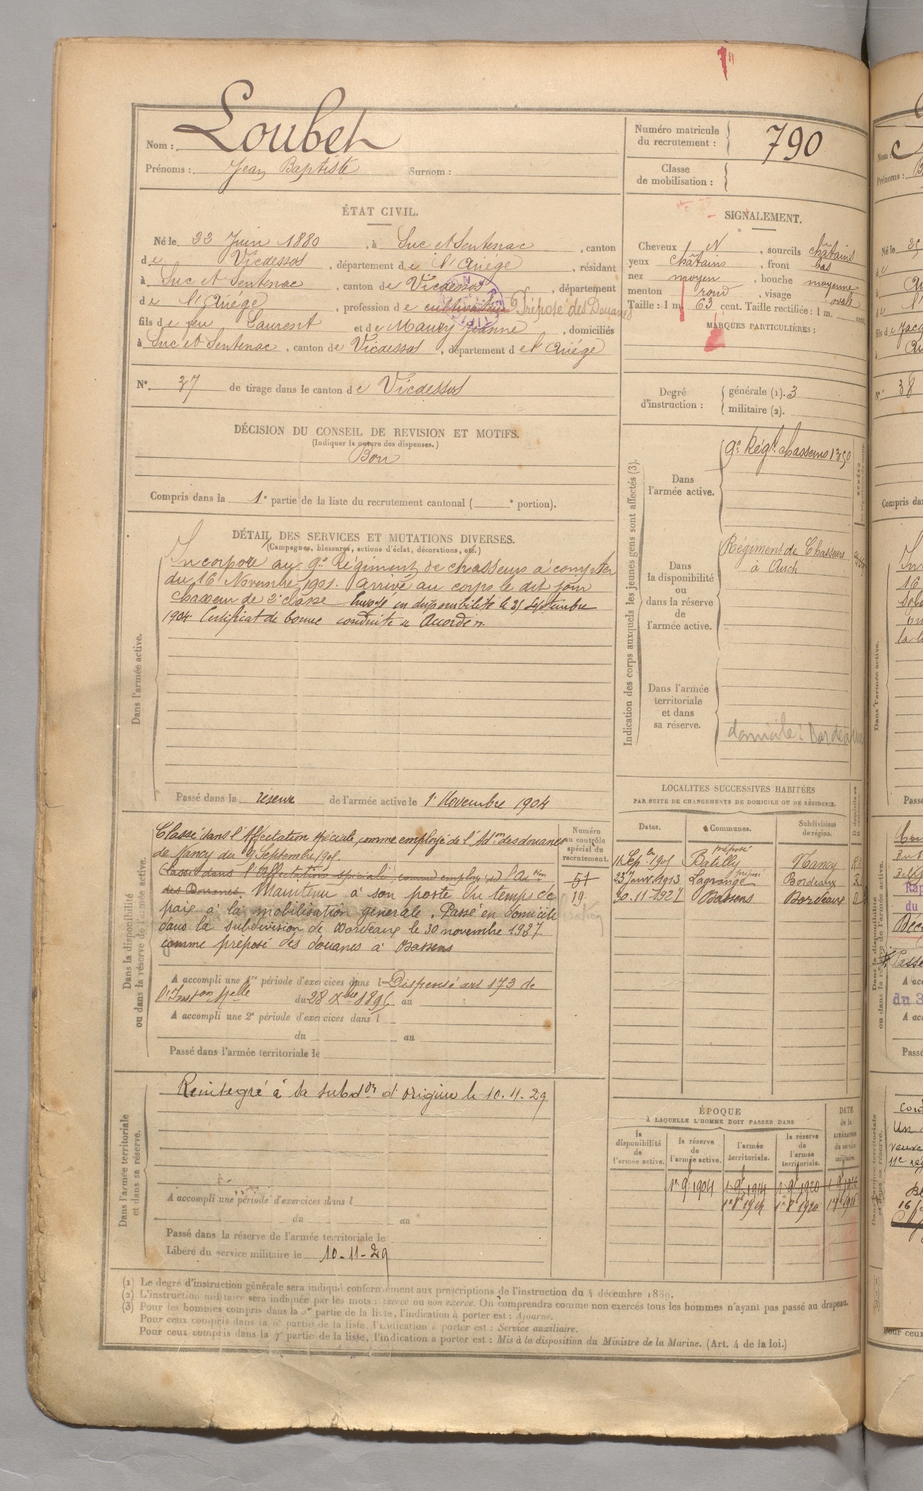 Nom : Loubet
Prénoms : Jean Baptiste Surnom :
Numéro matricule du recrutement : 790
Classe de mobilisation :
ÉTAT CIVIL.
Né le 23 Juin 1880, à Suc et Sentenac, canton
de Vicdessos, département de l'Ariège, résidant
à Suc et Sentenac, canton de Vicdessos, département
de l'Ariège, profession de cultivateur Préposé des Douanes
fils de feu Laurent et de Maury Jeanne, domiciliés
à Suc et Sentenac, canton de Vicdessos, département de l'Ariège
N° 37 de tirage dans le canton de Vicdessos
SIGNALEMENT.
Cheveux N, sourcils châtains
yeux châtains, front bas
nez moyen, bouche moyenne
menton rond, visage ovale
Taille : 1 m. 63 cent. Taille rectifiée : 1 m. cent.
MARQUES PARTICULIÈRES :
Degré d'instruction : générale (1). 3
militaire (2).
DÉCISION DU CONSEIL DE REVISION ET MOTIFS.
(Indiquer la nature des dispenses.)
Bon
Compris dans la 1e partie de la liste du recrutement cantonal ( e portion).
DÉTAIL DES SERVICES ET MUTATIONS DIVERSES.
(Campagnes, blessures, actions d'éclat, décorations, etc.)
Dans l'armée active.
Incorporé au 9e Régiment de chasseurs à compter
du 16 Novembre 1901. Arrivé au corps le dit jour
Chasseur de 2e classe Envoyé en disponibilité le 21 Septembre
1904 Certificat de bonne conduite « Accordé ».
Passé dans la réserve de l'armée active le 1 Novembre 1904
Indication des corps auxquels les jeunes gens sont affectés (3).
Dans l'armée active.
9e Régt chasseurs
Dans la disponibilité ou dans la réserve de l'armée active.
Régiment de Chasseurs
à Auch
Dans l'armée territoriale et dans sa réserve.
domicilié Bordeaux
LOCALITÉS SUCCESSIVES HABITÉES
PAR SUITE DE CHANGEMENTS DE DOMICILE OU DE RÉSIDENCE.
Dates. Communes. Subdivision de région.
préposé
Batilly Nancy
23 Janv 1913 Lagrange Bordeaux
30.11.1927 Bassens Bordeaux
Dans la disponibilité ou dans la réserve de l'armée active.
Numéro au contrôle spécial du recrutement.
51
19
Classé dans l'affectation spéciale, comme employé de l'Adon des douanes
de Nancy du 9 Septembre 1905
Classé dans l'affectation spéciale comme employé de l'Adon
des Douanes. Maintenu à son poste du temps de
paix à la mobilisation générale. Passé en domicile
dans la subdivision de Bordeaux le 30 novembre 1927
comme préposé des douanes à Bassens
A accompli une 1re période d'exercices dans l Dispensé art 173 de
l'Inston Melle du 28 Xbre 1895 au
A accompli une 2e période d'exercices dans l
du au
Passé dans l'armée territoriale le
Dans l'armée territoriale et dans sa réserve.
Réintégré à la subdon d'origine le 10.11.29
A accompli une période d'exercices dans l
du au
Passé dans la réserve de l'armée territoriale le
Libéré du service militaire le 10-11-29
ÉPOQUE
À LAQUELLE L'HOMME DOIT PASSER DANS
la disponibilité de l'armée active. la réserve de l'armée active. l'armée territoriale. la réserve de l'armée territoriale. DATE de la libération du service militaire.
1er 9bre 1904
(1) Le degré d'instruction générale sera indiqué conformément aux prescriptions de l'instruction du 4 décembre 1889.
(2) L'instruction militaire sera indiquée par les mots : exercé ou non exercé. On comprendra comme non exercés tous les hommes n'ayant pas passé au drapeau.
(3) Pour les hommes compris dans la 5e partie de la liste, l'indication à porter est : Ajourné.
Pour ceux compris dans la 6e partie de la liste, l'indication à porter est : Service auxiliaire.
Pour ceux compris dans la 7e partie de la liste, l'indication à porter est : Mis à la disposition du Ministre de la Marine. (Art. 4 de la loi.)